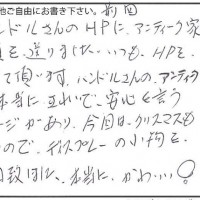 他ご自由にお書き下さい。前回
ンドルさんのHPに、アンティーク家
真を送りました。いつも、HPを、
て頂います。ハンドルさんの、アンティーク
本当に、きれいで、安心を言う
ージがあり、今回は、クリスマスも
ので、ディスプレーの小物を
本当に、かわいい!